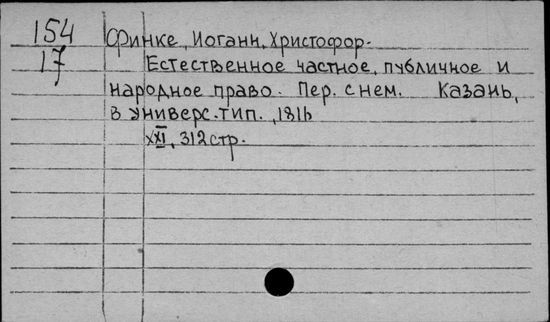 154 Финке, Иоганн, Христофор.
17 Естественное частное, публичное и
народное право. Пер. с нем. Казань,
в универс. тип., 1816
XXI, 312 стр.